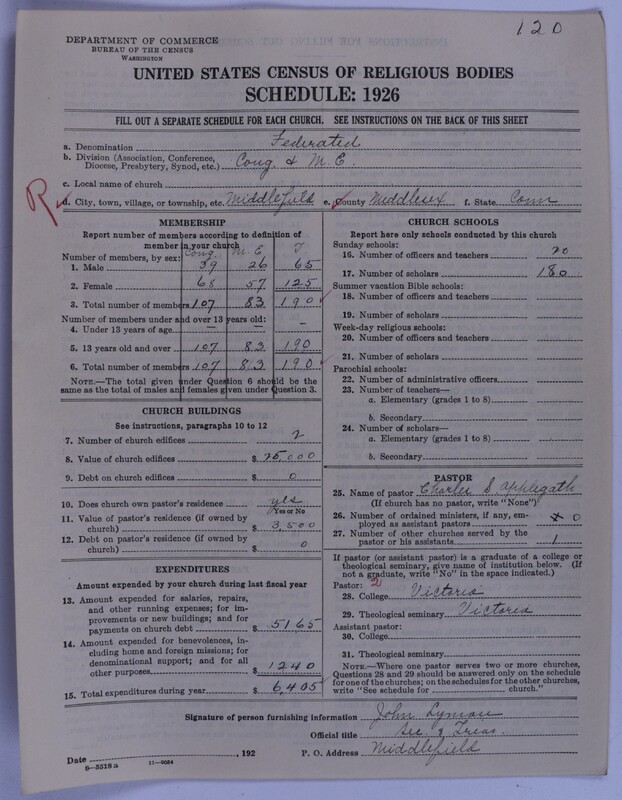 120
DEPARTMENT OF COMMERCE
BUREAU OF THE CENSUS
WASHINGTON
UNITED STATES CENSUS OF RELIGIOUS BODIES
SCHEDULE: 1926
FILL OUT A SEPARATE SCHEDULE FOR EACH CHURCH. SEE INSTRUCTIONS ON THE BACK OF THIS SHEET
a. Denomination Federated
b. Division (Association, Conference,
Diocese, Presbytery, Synod, etc.) Cong & M.E.
c. Local name of church
R
d. City, town, village, or township, etc. Middlefield e. County Middlesex f. State Conn
MEMBERSHIP
Report number of members according to definition of
member in your church
Number of members, by sex: Cong. M. E T
1. Male 39 26 65
2. Female 68 57 125
3. Total number of members 107 83 190
Number of members under and over 13 years old:
4. Under 13 years of age — — —
5. 13 years old and over 107 83 190
6. Total number of members 107 83 190
NOTE.—The total given under Question 6 should be the
same as the total of males and females given under Question 3.
CHURCH BUILDINGS
See instructions, paragraphs 10 to 12
7. Number of church edifices 2
8. Value of church edifices $ 25,000
9. Debt on church edifices $ 0
10. Does church own pastor's residence yes
Yes or No
11. Value of pastor's residence (if owned by
church) $ 3,500
12. Debt on pastor's residence (if owned by
church) $ 0
EXPENDITURES
Amount expended by your church during last fiscal year
13. Amount expended for salaries, repairs,
and other running expenses; for im-
provements or new buildings; and for
payments on church debt $ 5165
14. Amount expended for benevolences, in-
cluding home and foreign missions; for
denominational support; and for all
other purposes $ 1240
15. Total expenditures during year $ 6,405
CHURCH SCHOOLS
Report here only schools conducted by this church
Sunday schools:
16. Number of officers and teachers 20
17. Number of scholars 180
Summer vacation Bible schools:
18. Number of officers and teachers
19. Number of scholars
Week-day religious schools:
20. Number of officers and teachers
21. Number of scholars
Parochial schools:
22. Number of administrative officers
23. Number of teachers—
a. Elementary (grades 1 to 8)
b. Secondary
24. Number of scholars—
a. Elementary (grades 1 to 8)
b. Secondary
PASTOR
25. Name of pastor Charles S. Applegath
(If church has no pastor, write "None")
26. Number of ordained ministers, if any, em-
ployed as assistant pastors 0
27. Number of other churches served by the
pastor or his assistants 1
If pastor (or assistant pastor) is a graduate of a college or
theological seminary, give name of institution below. (If
not a graduate, write "No" in the space indicated.)
Pastor: 2
28. College Victoria
29. Theological seminary Victoria
Assistant pastor:
30. College
31. Theological seminary
NOTE.—Where one pastor serves two or more churches,
Questions 28 and 29 should be answered only on the schedule
for one of the churches; on the schedules for the other churches,
write "See schedule for church."
Signature of person furnishing information John Lyman
Official title Sec. & Treas.
Date , 192 P. O. Address Middlefield
8—5518a 11—9084